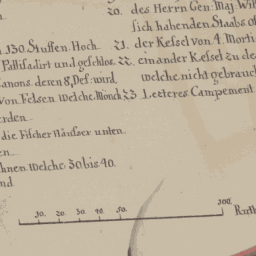 20. des Herrn Gen: Maj: Wil
sich habenden Staabs o
130. Stuffen Hoch
21. der Kessel von 4. Morti
Pallisadirt und geschlos.
22. ein ander Kessel zu de
anons. deren 8. Def: wurd.
welche nicht gebrauch
von Felsen. Welche Mönch
23. Leeres Campement
rden.
die Fischer Häusser unten.
en.
hnen Welche. 30. bis 40.
nd
10. 20. 30. 40. 50. 200.
Ruth